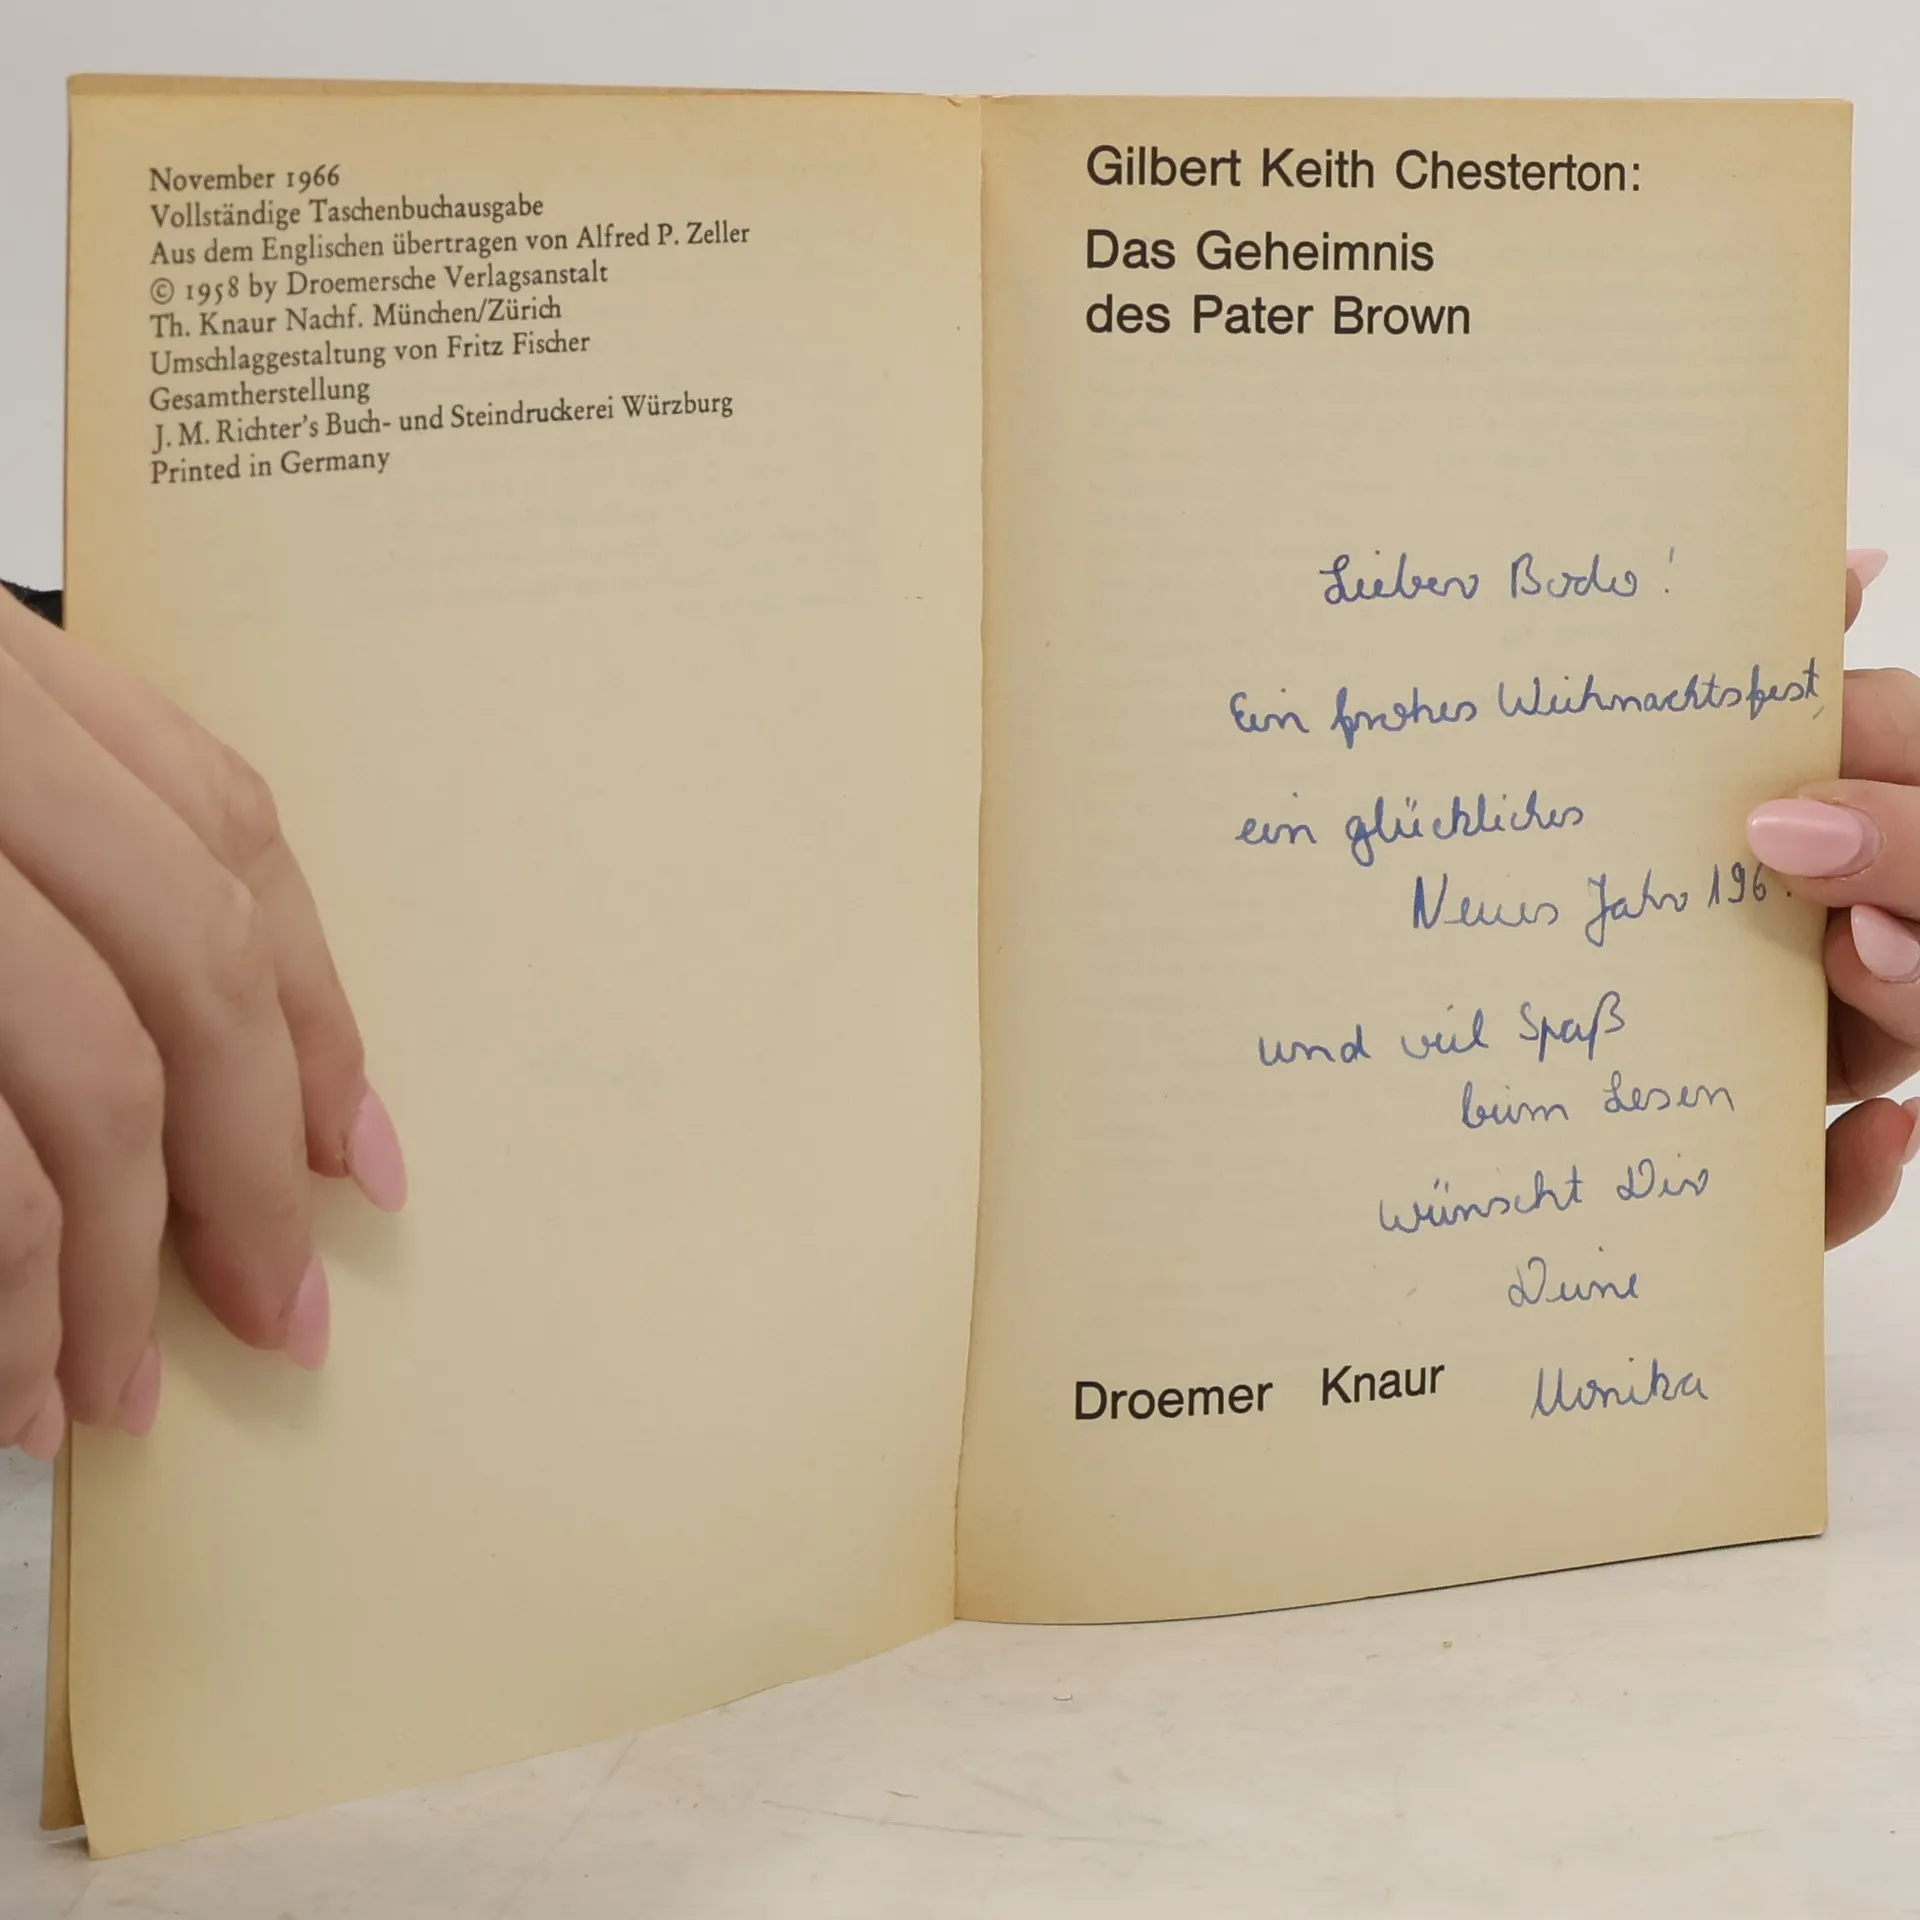 November 1966
Vollständige Taschenbuchausgabe
Aus dem Englischen übertragen von Alfred P. Zeller
© 1958 by Droemersche Verlagsanstalt
Th. Knaur Nachf. München/Zürich
Umschlaggestaltung von Fritz Fischer
Gesamtherstellung
J. M. Richter's Buch- und Steindruckerei Würzburg
Printed in Germany
Gilbert Keith Chesterton:
Das Geheimnis
des Pater Brown
Lieber Bodo!
Ein frohes Weihnachtsfest,
ein glückliches
Neues Jahr 196
und viel Spaß
beim Lesen
wünscht Dir
Deine
Monika
Droemer Knaur